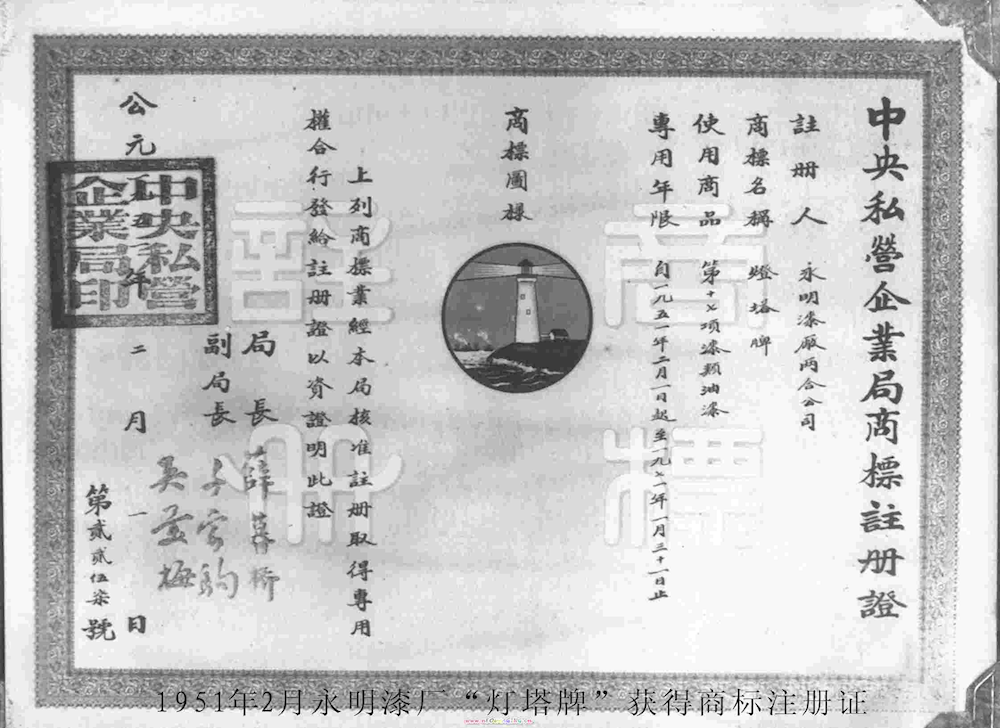 中央私營企業局商標註册證
註册人 永明漆廠兩合公司
商標名稱 燈塔牌
使用商品 第十七項漆類油漆
專用年限 自一九五一年二月一日起至一九七一年一月三十一日止
商標圖樣
上列商標業經本局核准註册取得專用
權合行發給註册證以資證明此證
局長 薛暮橋
副局長
吳羹梅
公元年二月一日
中央私營
企業局印
第貳貳伍柒號
商標
註册
1951年2月永明漆厂“灯塔牌”获得商标注册证